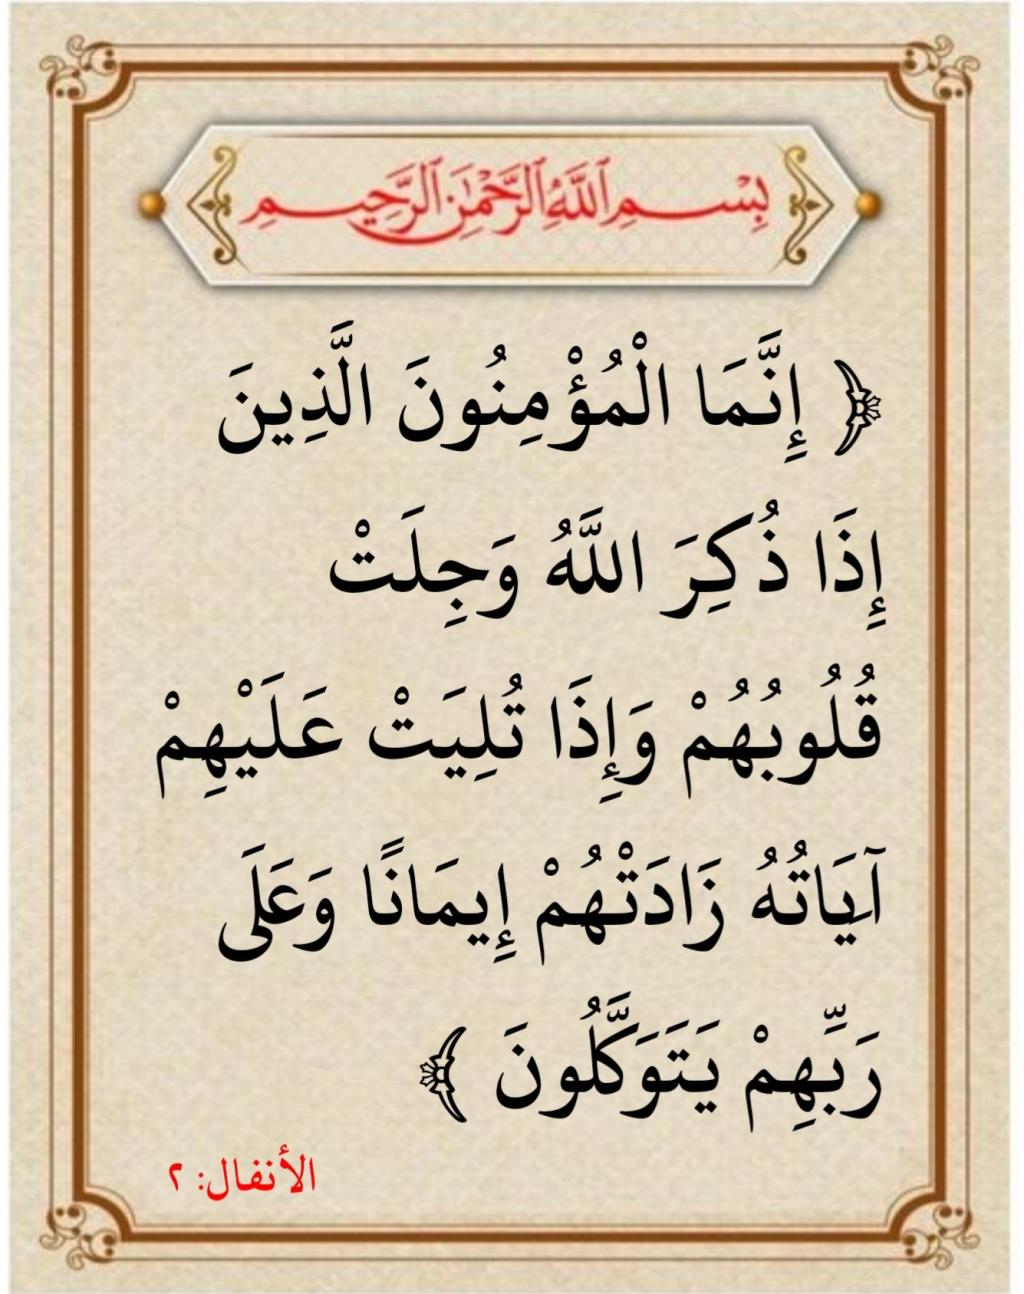 بِسْمِ ٱللَّهِ ٱلرَّحْمَٰنِ ٱلرَّحِيمِ
﴿ إِنَّمَا الْمُؤْمِنُونَ الَّذِينَ
إِذَا ذُكِرَ اللَّهُ وَجِلَتْ
قُلُوبُهُمْ وَإِذَا تُلِيَتْ عَلَيْهِمْ
آيَاتُهُ زَادَتْهُمْ إِيمَانًا وَعَلَى
رَبِّهِمْ يَتَوَكَّلُونَ ﴾
الأنفال: ٢